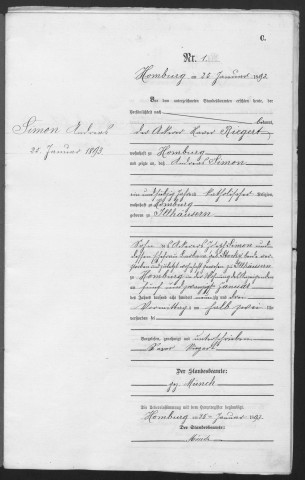 C.
Nr. 1
Homburg am 26 Januar 1893.
Vor dem unterzeichneten Standesbeamten erschien heute, der
Persönlichkeit nach
kannt,
Simon Andreas
25. Januar 1893.
der Ackerer Xaver Riegert
wohnhaft zu Homburg
und zeigte an, daß Andreas Simon
Jahre katholischer Religion,
wohnhaft zu Homburg
geboren zu Illhäusern
Sohn des Ackerers Josef Simon und
zu Illhäusern
zu Homburg in der Wohnung
fünf und zwanzigsten Januar
des Jahres tausend acht hundert neunzig und drei
Vormittags um halb zwei Uhr
verstorben sei
Vorgelesen, genehmigt und unterschrieben
Xaver Riegert
Der Standesbeamte:
gez. Münch
Die Uebereinstimmung mit dem Hauptregister beglaubigt
Homburg am 26 Januar 1893.
Der Standesbeamte:
Münch